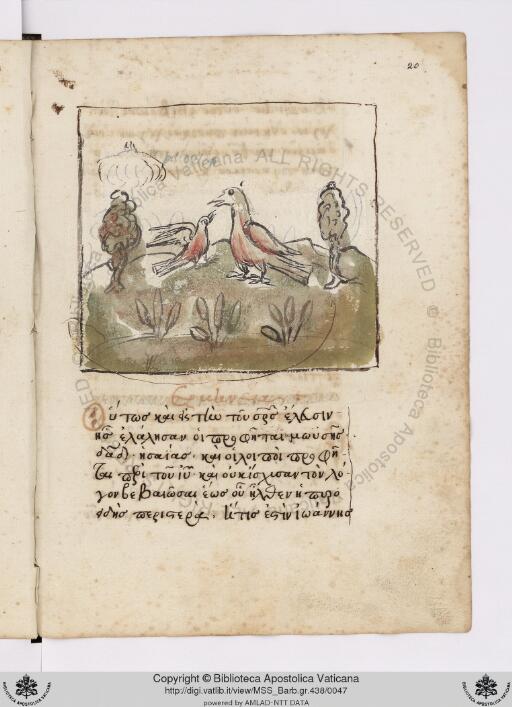 20
Ἑρμηνεία
οὕτως καὶ ἐπὶ τοῦ
ἐλάλησαν οἱ προφῆται μωϋσῆς
δαδ ἡσαΐας καὶ οἱ λοιποὶ προφῆ
ται περὶ τοῦ ιυ καὶ οὐκ ἴσχυσαν τὸν λό
γον βεβαιῶσαι ἕως οὗ ἦλθεν ἡ πυρο
ειδὴς περιστερά. ἥτις ἐστὶν ἰωάννης
Biblioteca Apostolica Vaticana ALL RIGHTS RESERVED © Biblioteca Apostolica
Copyright © Biblioteca Apostolica Vaticana
http://digi.vatlib.it/view/MSS_Barb.gr.438/0047
powered by AMLAD-NTT DATA